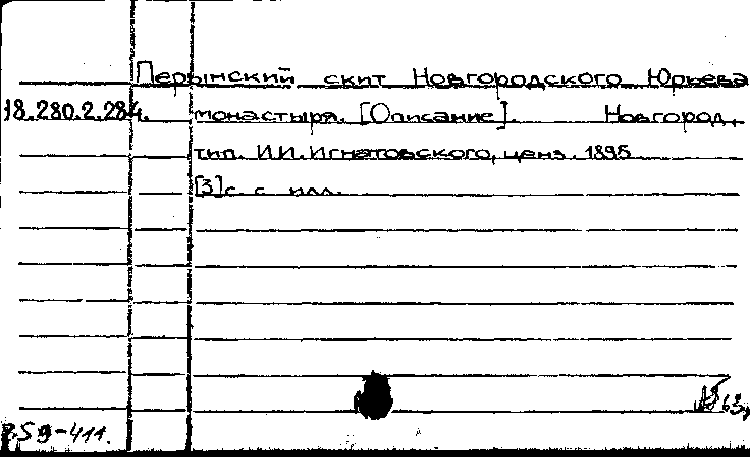 Перынский скит Новгородского Юрьева
18.280.2.284. монастыря. [Описание]. Новгород,
тип. И.И. Игнатовского, ценз. 1895
[3]с. с илл.
59-411.